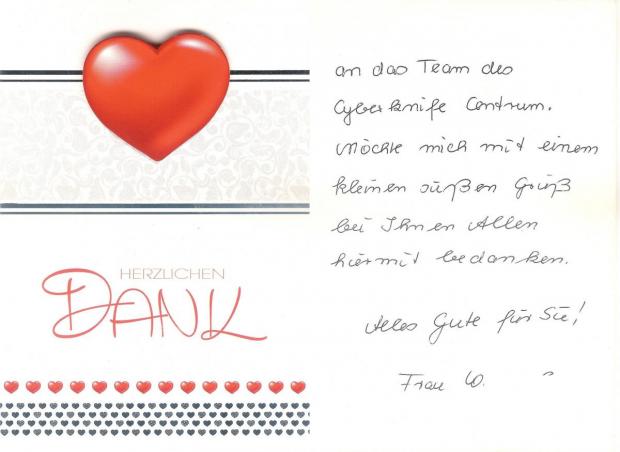 HERZLICHEN
DANK
an das Team des
Cyberknife Centrum.
Möchte mich mit einem
kleinen süßen Gruß
bei Ihnen Allen
hiermit bedanken.
Alles Gute für Sie!
Frau W.